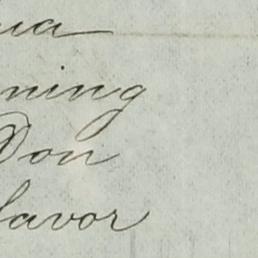 ua
ning
Don
favor